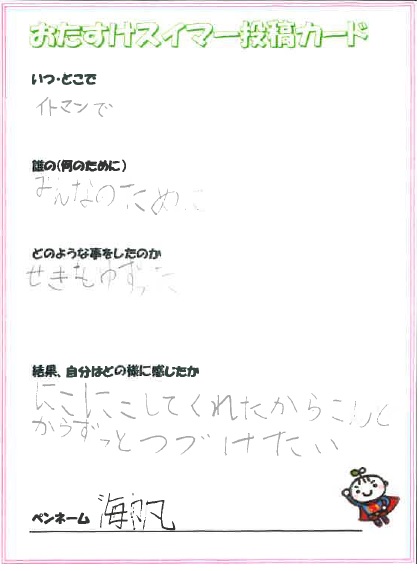 おたすけスイマー投稿カード
いつ・どこで
イトマンで
誰の(何のために)
みんなのために
どのような事をしたのか
せきをゆずった
結果、自分はどの様に感じたか
にこにこしてくれたからこんど
からずっとつづけたい
ペンネーム 海帆